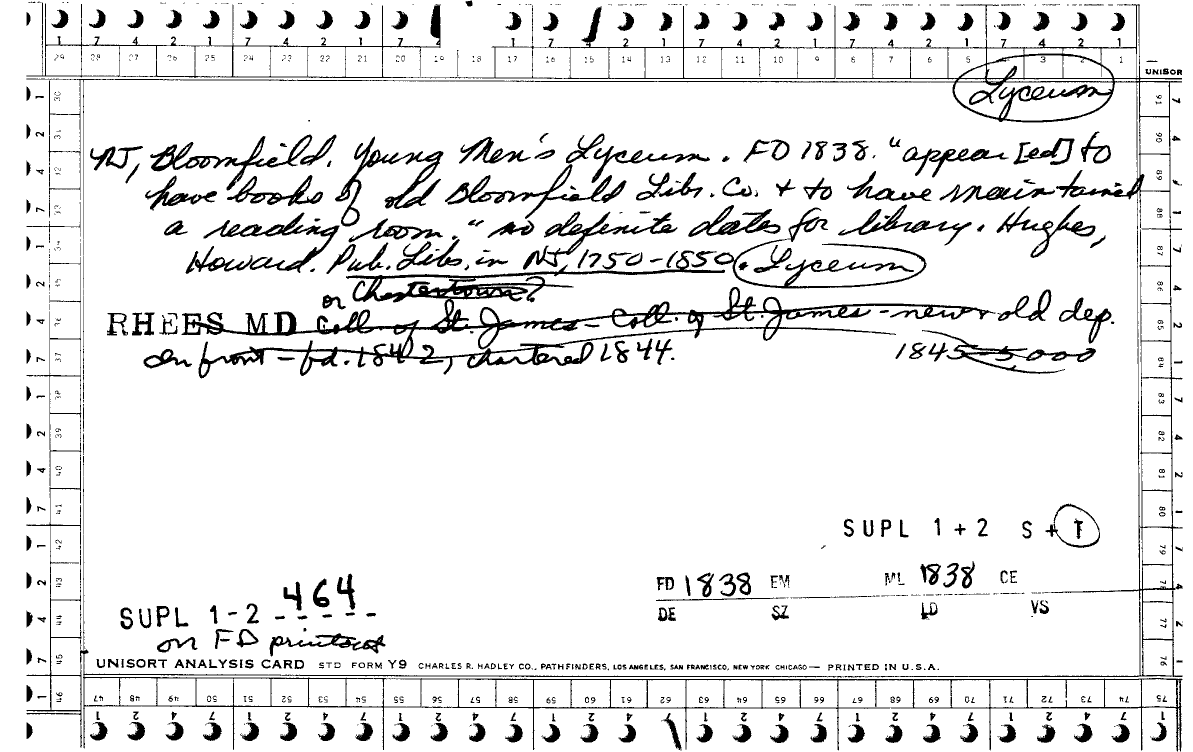 1 7 4 2 1 7 4 2 1 7 1 7 4 2 1 7 4 2 1 7 4 2 1 7 4 2 1
29 28 27 26 25 24 23 22 21 20 19 18 17 16 15 14 13 12 11 10 9 8 7 6 5 4 3 2 1
UNISOR
Lyceum
NJ, Bloomfield. Young Men's Lyceum. FD 1838. "appear[ed] to
have books of old Bloomfield Libs. Co. + to have maintained
a reading room." no definite dates for library. Hughes,
Howard. Pub. Libs. in NJ, 1750-1850. Lyceum
or Chestertown?
RHEES MD Coll. of St. James - Coll. of St. James - new + old dep.
on front - fd. 1842, chartered 1844. 1845-5,000
SUPL 1+2 S+T
FD 1838 EM ML 1838 CE
DE SZ LD VS
SUPL 1-2 464
on FD printout
UNISORT ANALYSIS CARD STD FORM Y9 CHARLES R. HADLEY CO., PATHFINDERS, LOS ANGELES, SAN FRANCISCO, NEW YORK CHICAGO — PRINTED IN U.S.A.
47 48 49 50 51 52 53 54 55 56 57 58 59 60 61 62 63 64 65 66 67 68 69 70 71 72 73 74 75